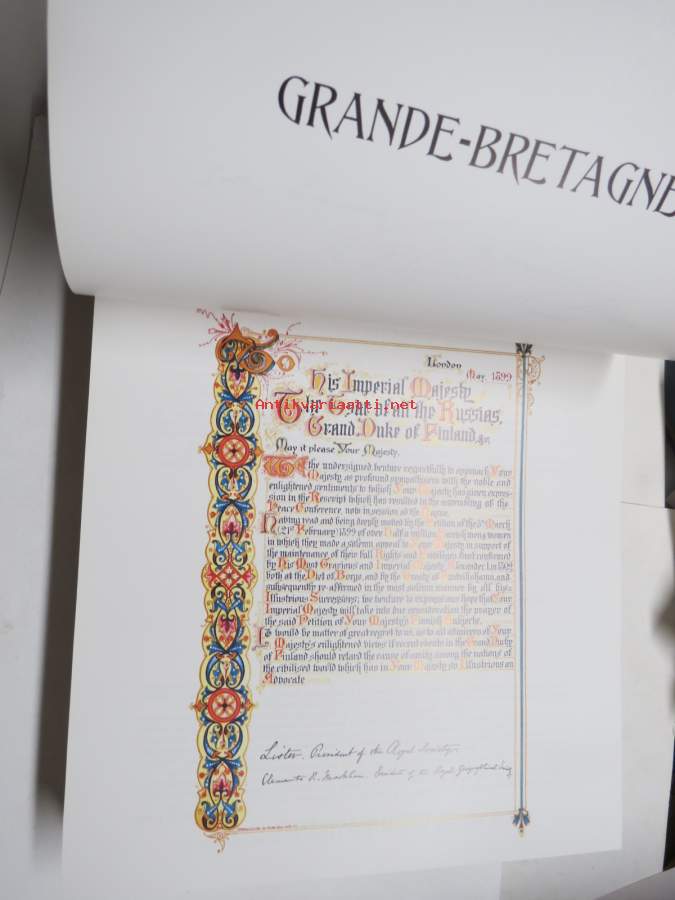 GRANDE-BRETAGNE
London
May, 1899
To His Imperial Majesty
The Tsar of all the Russias,
Grand Duke of Finland, &c
Antikvariaatti.net
May it please Your Majesty,
We the undersigned venture respectfully to approach Your
Majesty as profound sympathisers with the noble and
enlightened sentiments to which Your Majesty has given expres-
sion in the Rescript which has resulted in the assembling of the
Peace Conference, now in session at the Hague.
Having read and being deeply moved by the Petition of the 5th March
(21st February) 1899 of over Half a million Finnish men & women
in which they made a solemn appeal to Your Majesty in support of
the maintenance of their full Rights and Privileges first confirmed
by His Most Gracious and Imperial Majesty Alexander I in 1809
both at the Diet of Borgo, and by the Treaty of Fredrikshamn, and
subsequently re-affirmed in the most solemn manner by all his
Illustrious Successors; we venture to express our hope that Your
Imperial Majesty will take into due consideration the prayer of
the said Petition of Your Majesty's Finnish Subjects.
It would be matter of great regret to us, as to all admirers of Your
Majesty's enlightened views if recent events in the Grand Duchy
of Finland should retard the cause of amity among the nations of
the civilised world which has in Your Majesty so Illustrious an
Advocate
Lister, President of the Royal Society.
Clements R. Markham. President of the Royal Geographical Society